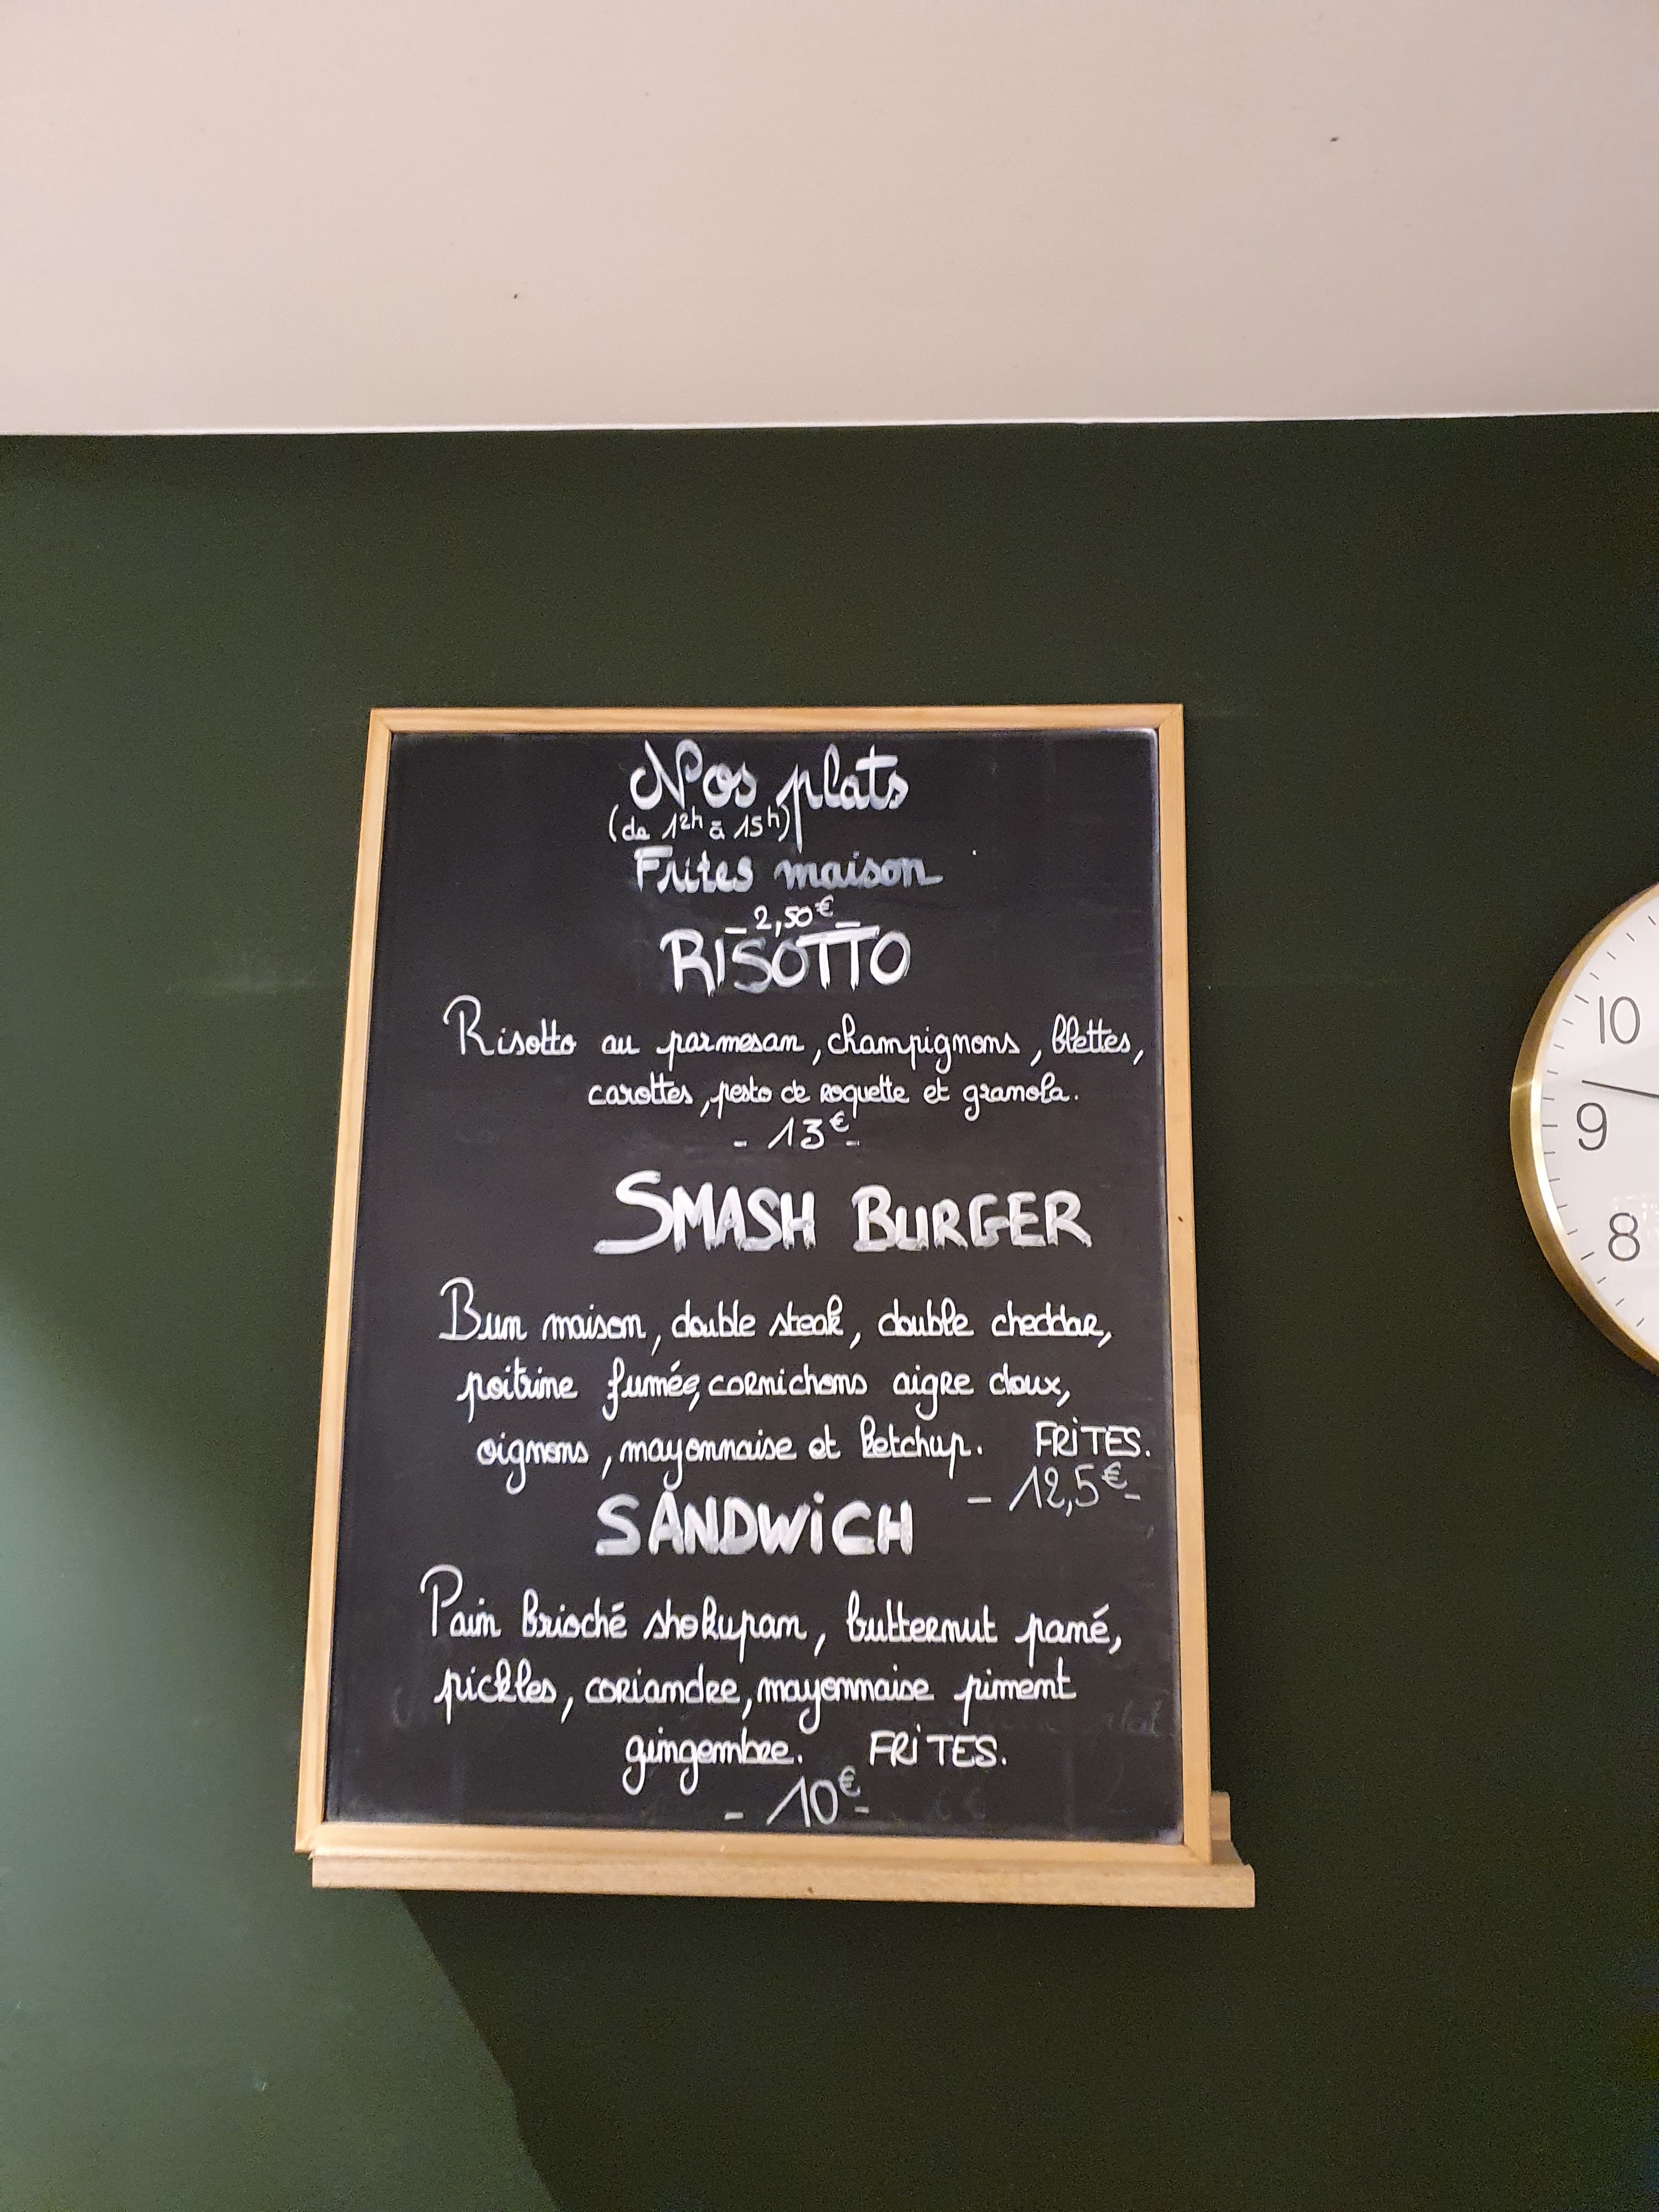 Nos plats
(de 12h à 15h)
Frites maison
- 2,50€ -
RISOTTO
Risotto au parmesan, champignons, blettes,
carottes, pesto de roquette et granola.
- 13€ -
SMASH BURGER
Bun maison, double steak, double cheddar,
poitrine fumée, cornichons aigre doux,
oignons, mayonnaise et ketchup. FRITES.
- 12,5€ -
SANDWICH
Pain brioché shokupan, butternut pané,
pickles, coriandre, mayonnaise piment
gingembre. FRITES.
- 10€ -
10
9
8